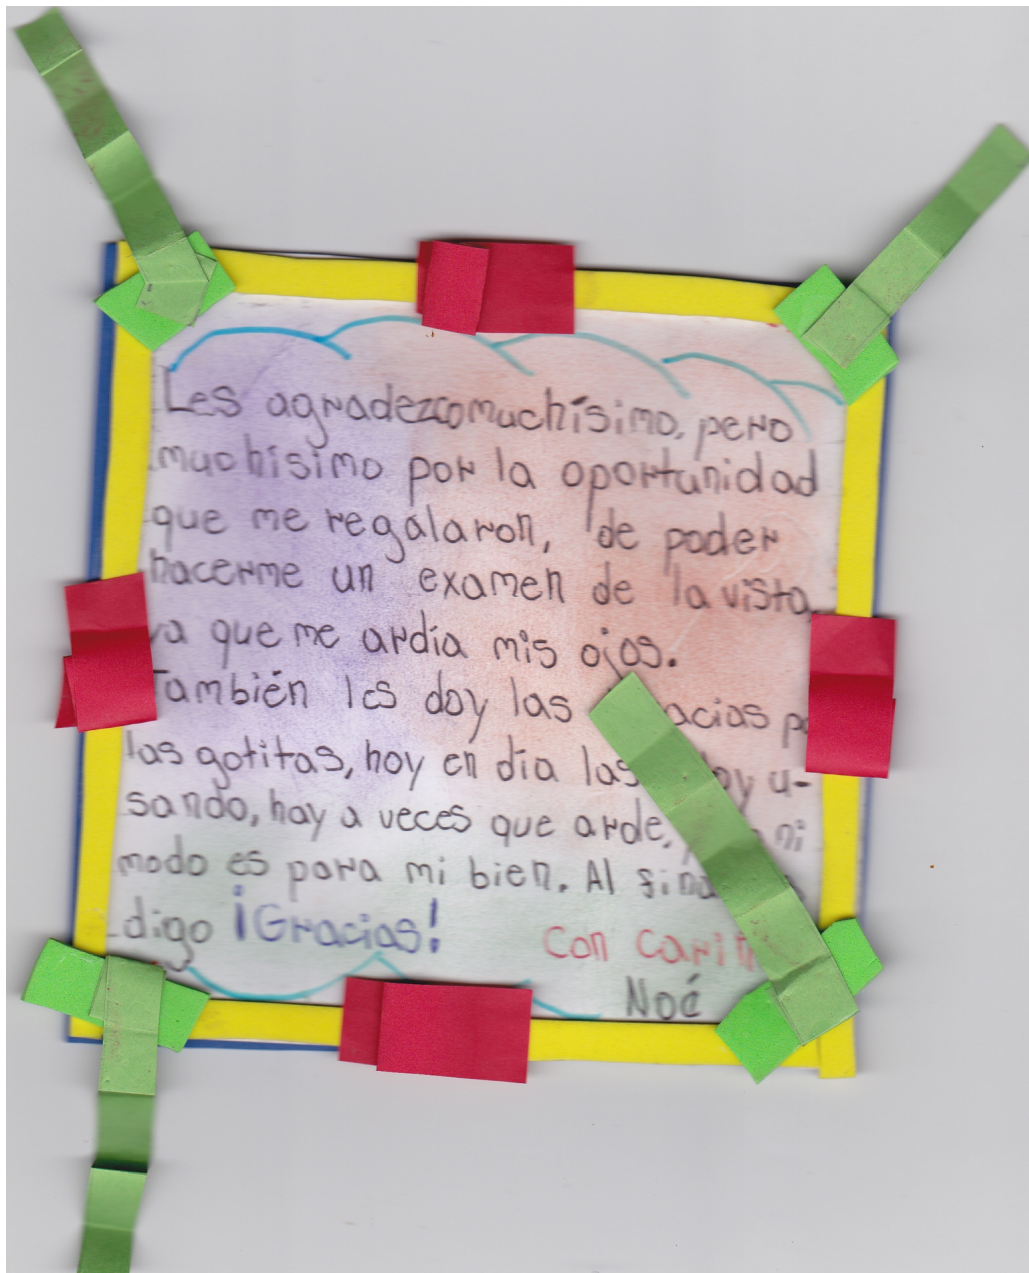 Les agradezco muchísimo, pero
muchísimo por la oportunidad
que me regalaron, de poder
hacerme un examen de la vista
ya que me ardía mis ojos.
También les doy las gracias
las gotitas, hoy en día las u-
sando, hay a veces que arde, ni
modo es para mi bien. Al
digo ¡Gracias!
Con
Noé